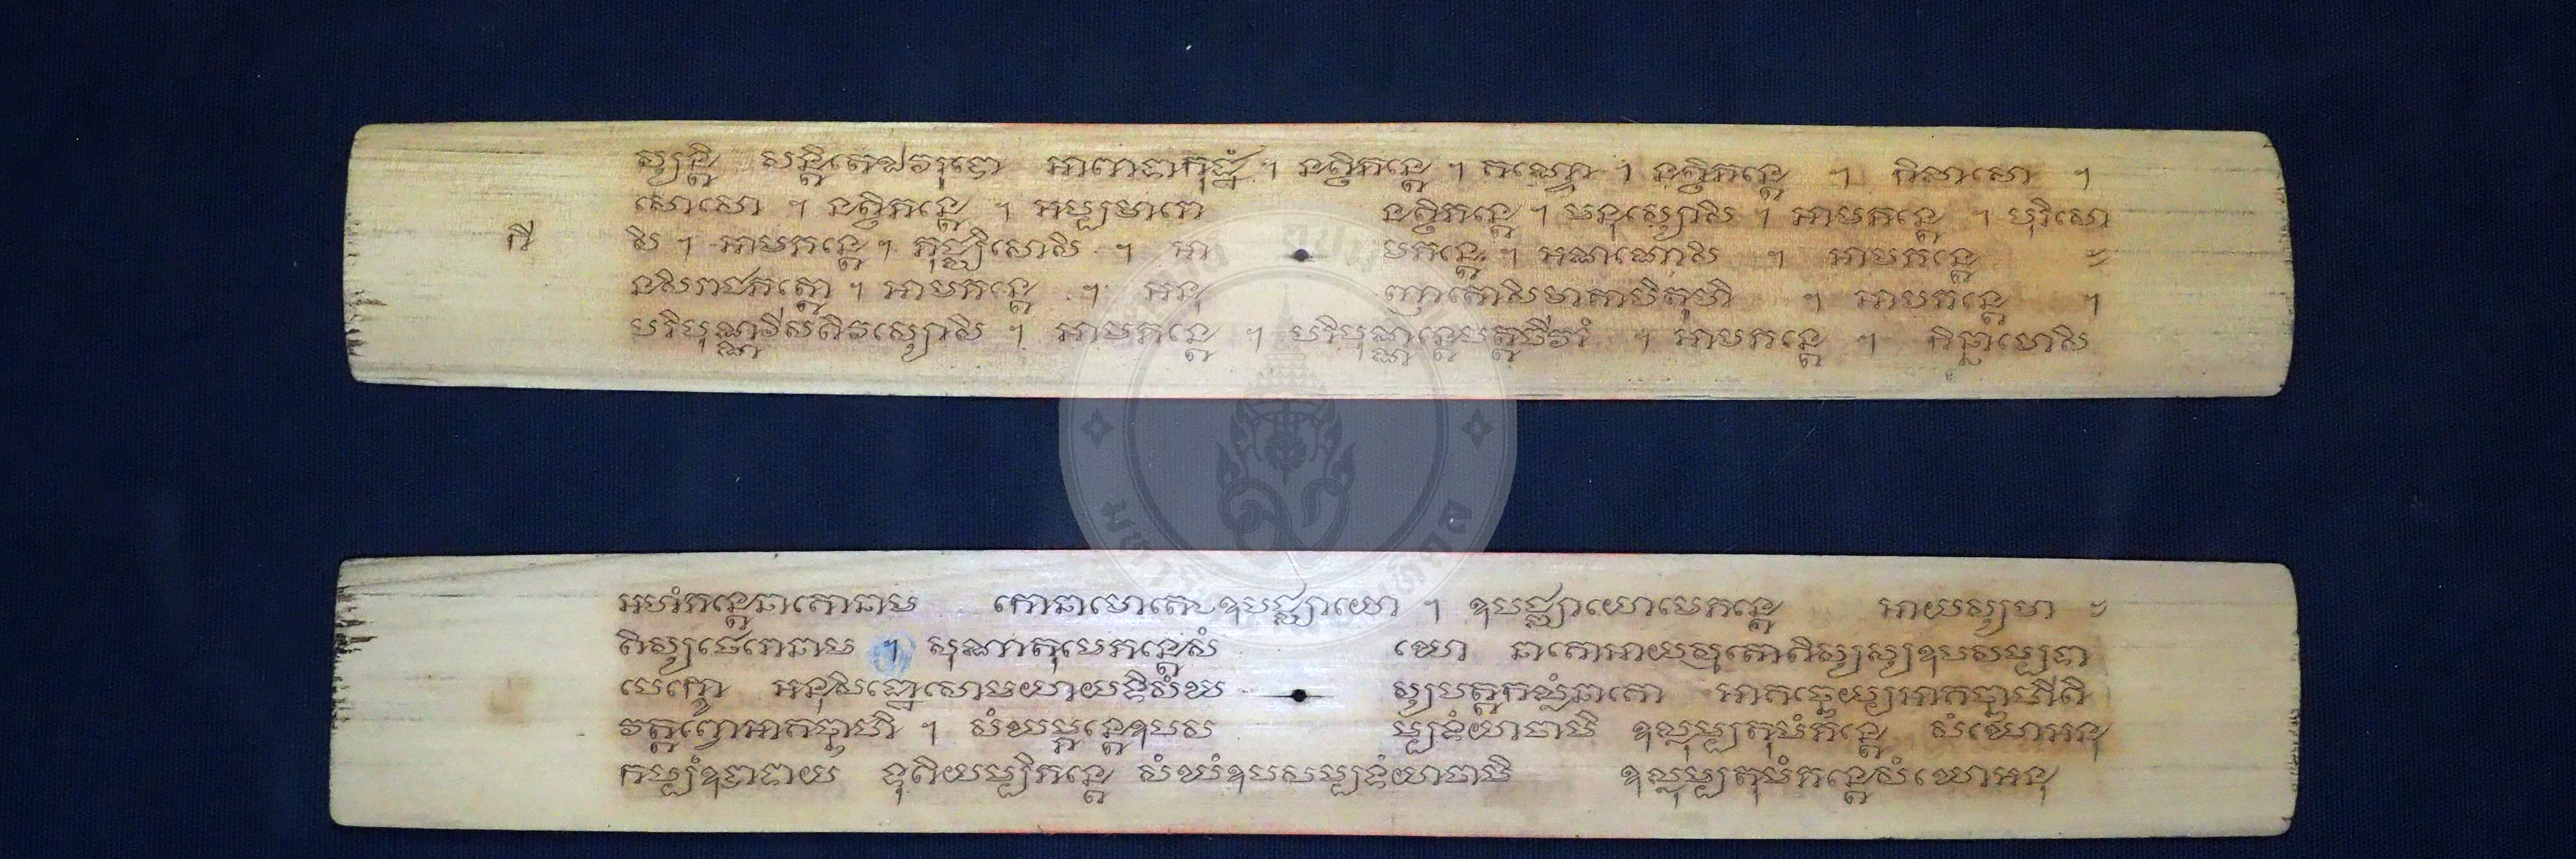 ស្សន្តិ សន្តិតេឯវរូបោ អាពាធាកុដ្ឋំ ។ នត្ថិភន្តេ ។ គណ្ឌោ ។ នត្ថិភន្តេ ។ កិលាសោ ។
សោសោ ។ នត្ថិភន្តេ ។ អប្បមារោ នត្ថិភន្តេ ។ មនុស្សោសិ ។ អាមភន្តេ ។ បុរិសោ
កី សិ ។ អាមភន្តេ ។ ភុជ្ឈិសោសិ ។ អា មភន្តេ ។ អណណោសិ ។ អាមភន្តេ
នសិរាជភត្តោ ។ អាមភន្តេ ។ អនុ ញាតោសិមាតាបិតូហិ ។ អាមភន្តេ ។
បរិបុណ្ណវីសតិវស្សោសិ ។ អាមភន្តេ ។ បរិបុណ្ណន្តេបត្តចីវរំ ។ អាមភន្តេ ។ កិន្នាមោសិ
អហំភន្តេនាគោនាម កោនាមោតេឧបជ្ឈាយោ ។ ឧបជ្ឈាយោមេភន្តេ អាយស្មា
តិស្សថេរោនាម ។ សុណាតុមេភន្តេសំ ឃោ នាគោអាយស្មតោតិស្សស្សឧបសម្បទា
បេក្ខោ អនុសិដ្ឋោសោមយាយទិសំឃ ស្សបត្តកល្លំនាគោ អាគច្ឆេយ្យអាគច្ឆាហីតិ
វត្តព្វោអាគច្ឆាហិ ។ សំឃម្ភន្តេឧបស ម្បទំយាចាមិ ឧល្លុម្បតុមំភន្តេ សំឃោអនុ
កម្បំឧបាទាយ ទុតិយម្បិភន្តេ សំឃំឧបសម្បទំយាចាមិ ឧល្លុម្បតុមំភន្តេសំឃោអនុ